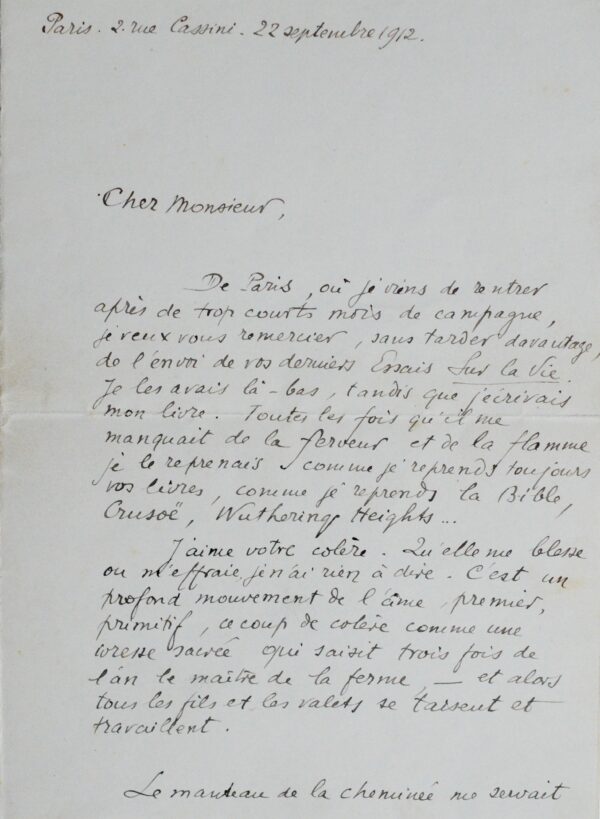 Paris. 2. rue Cassini. 22 septembre 1912.
Cher Monsieur,
De Paris, où je viens de rentrer
après de trop courts mois de campagne,
je veux vous remercier, sans tarder davantage,
de l'envoi de vos derniers Essais Sur la Vie.
Je les avais là-bas, tandis que j'écrivais
mon livre. Toutes les fois qu'il me
manquait de la ferveur et de la flamme
je le reprenais comme je reprends toujours
vos livres, comme je reprends la Bible,
Crusoë, Wuthering Heights...
J'aime votre colère. Qu'elle me blesse
ou m'effraie, je n'ai rien à dire. C'est un
profond mouvement de l'âme, premier,
primitif, ce coup de colère comme une
ivresse sacrée qui saisit trois fois de
l'an le maître de la ferme, — et alors
tous les fils et les valets se taisent et
travaillent.
Le manteau de la cheminée me servait